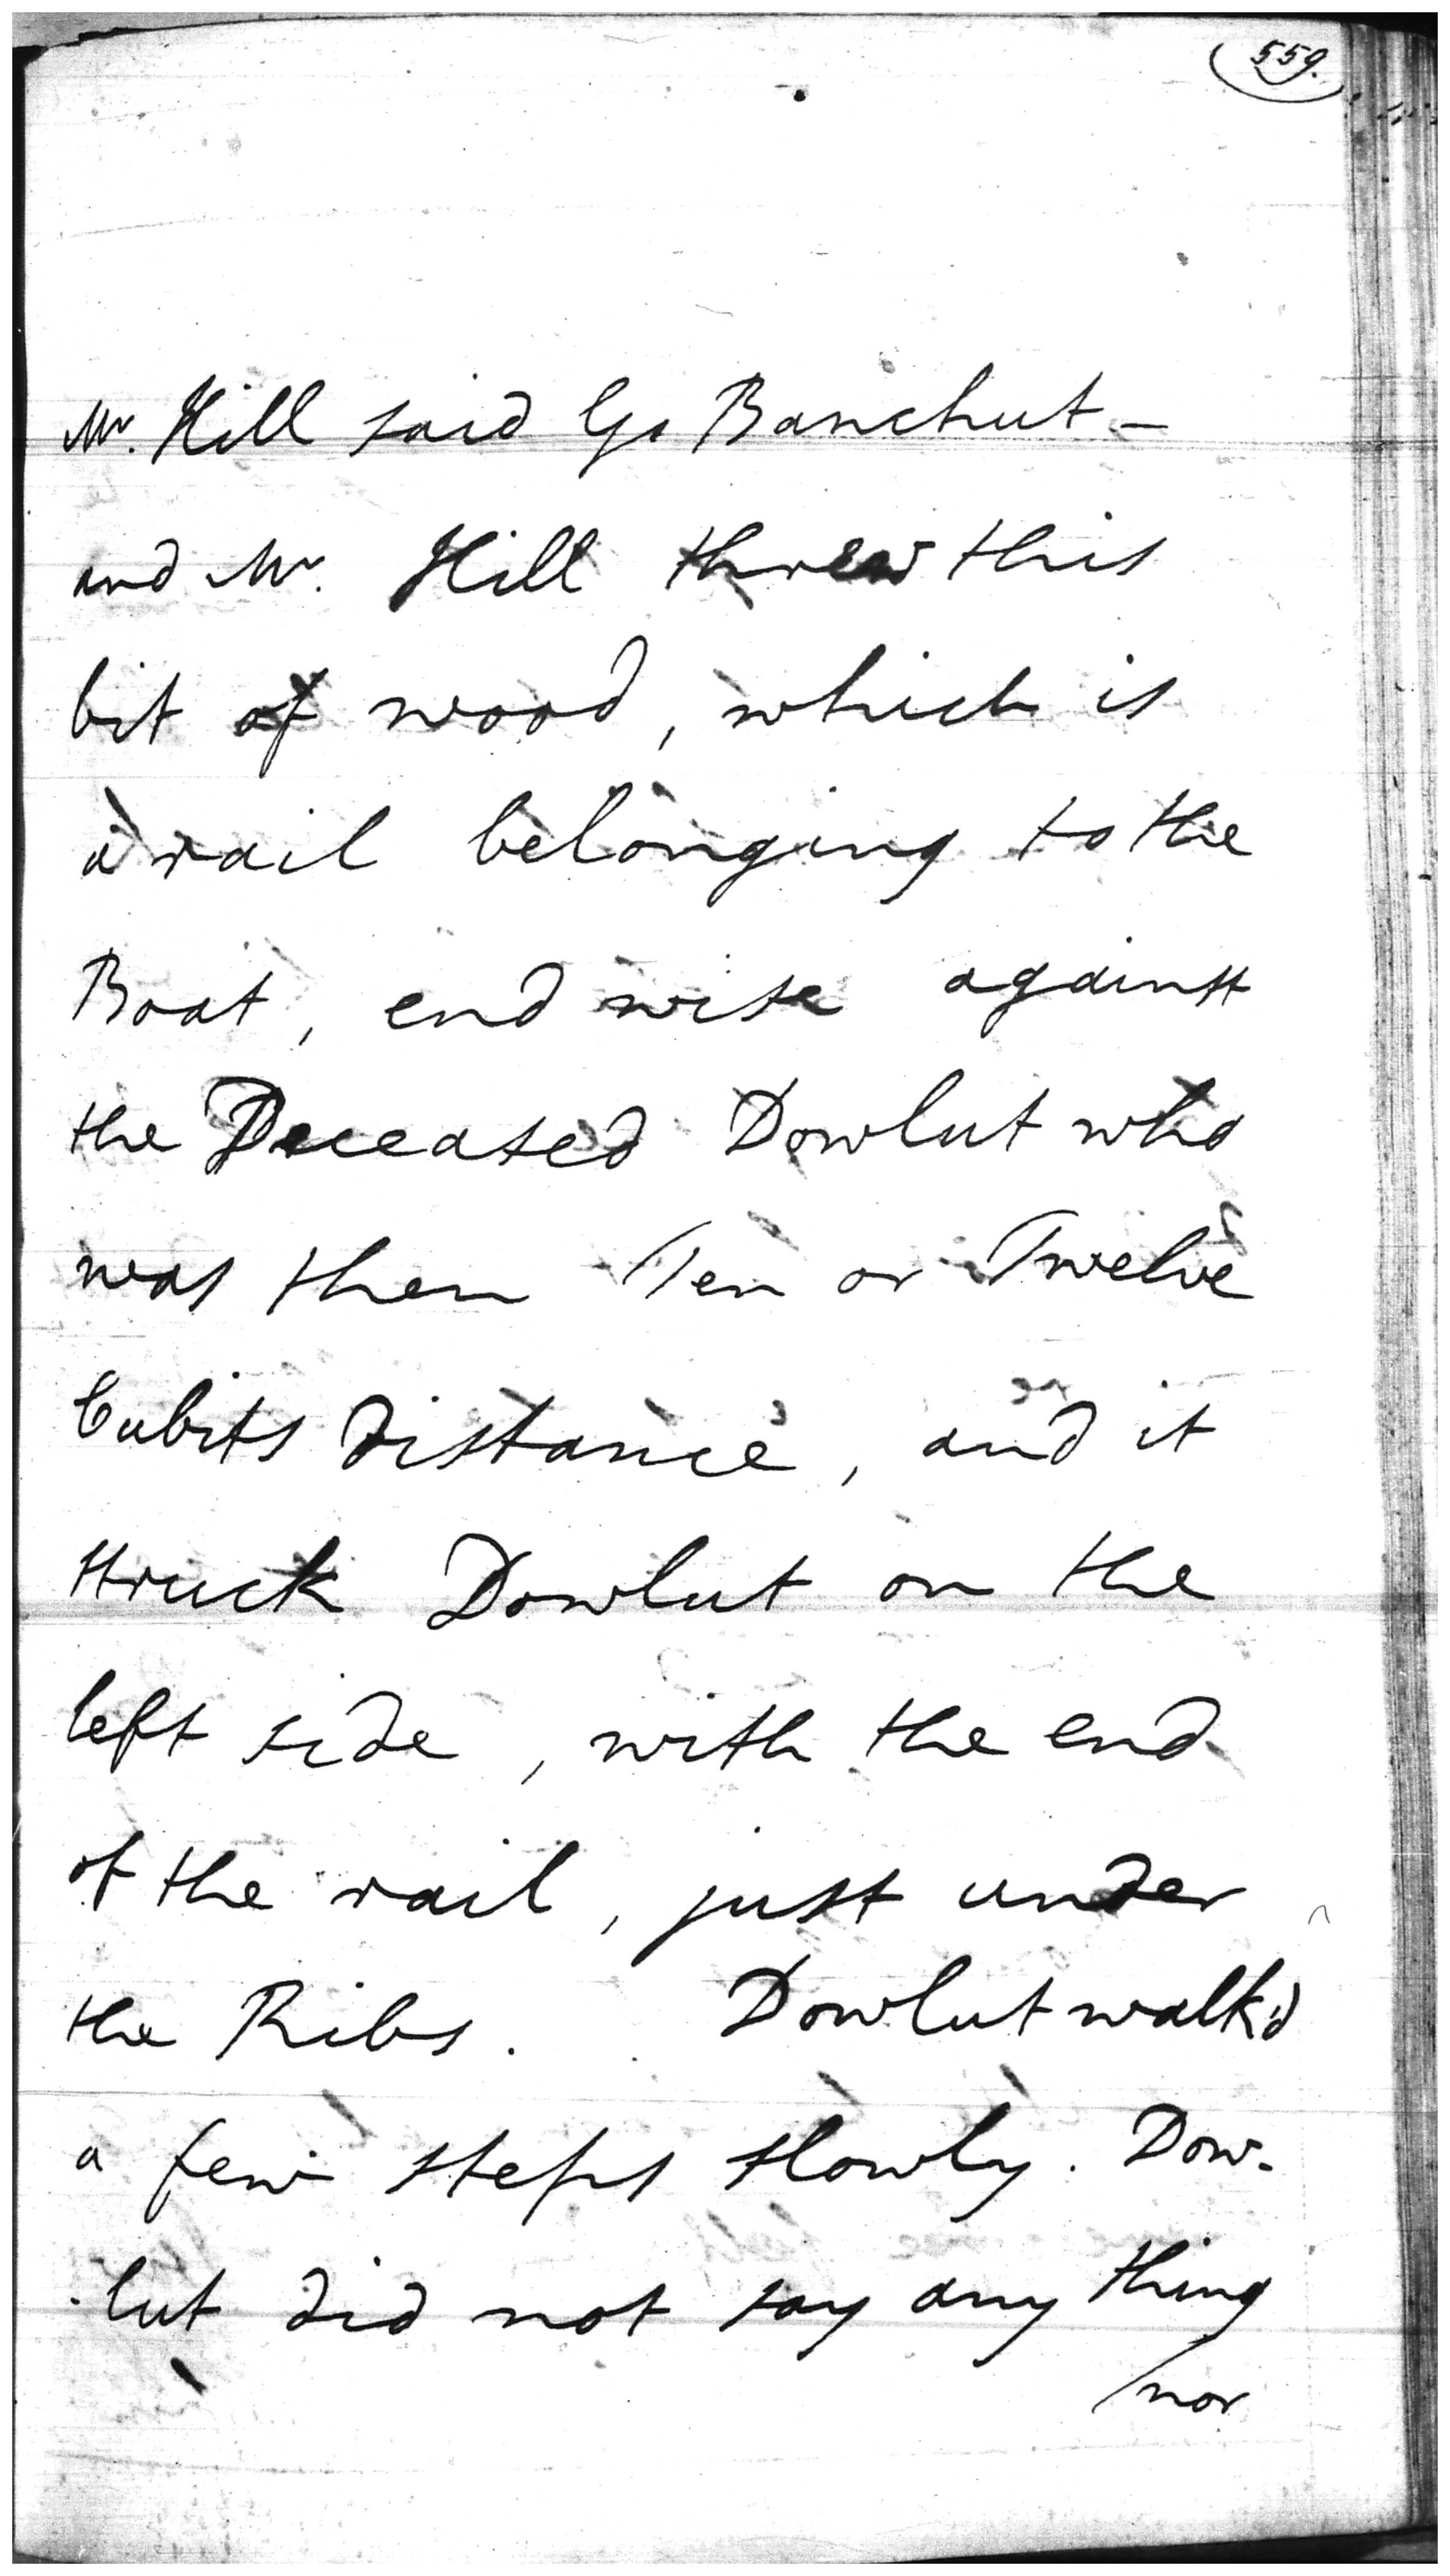 559.
Mr. Hill said Go Banchut -
and Mr. Hill threw this
bit of wood, which is
a rail belonging to the
Boat, end wise against
the Deceased Dowlut who
was then Ten or Twelve
Cubits distance, and it
struck Dowlut on the
left side, with the end
of the rail, just under
the Ribs. Dowlut walk'd
a few steps slowly. Dow-
-lut did not say any thing
/nor